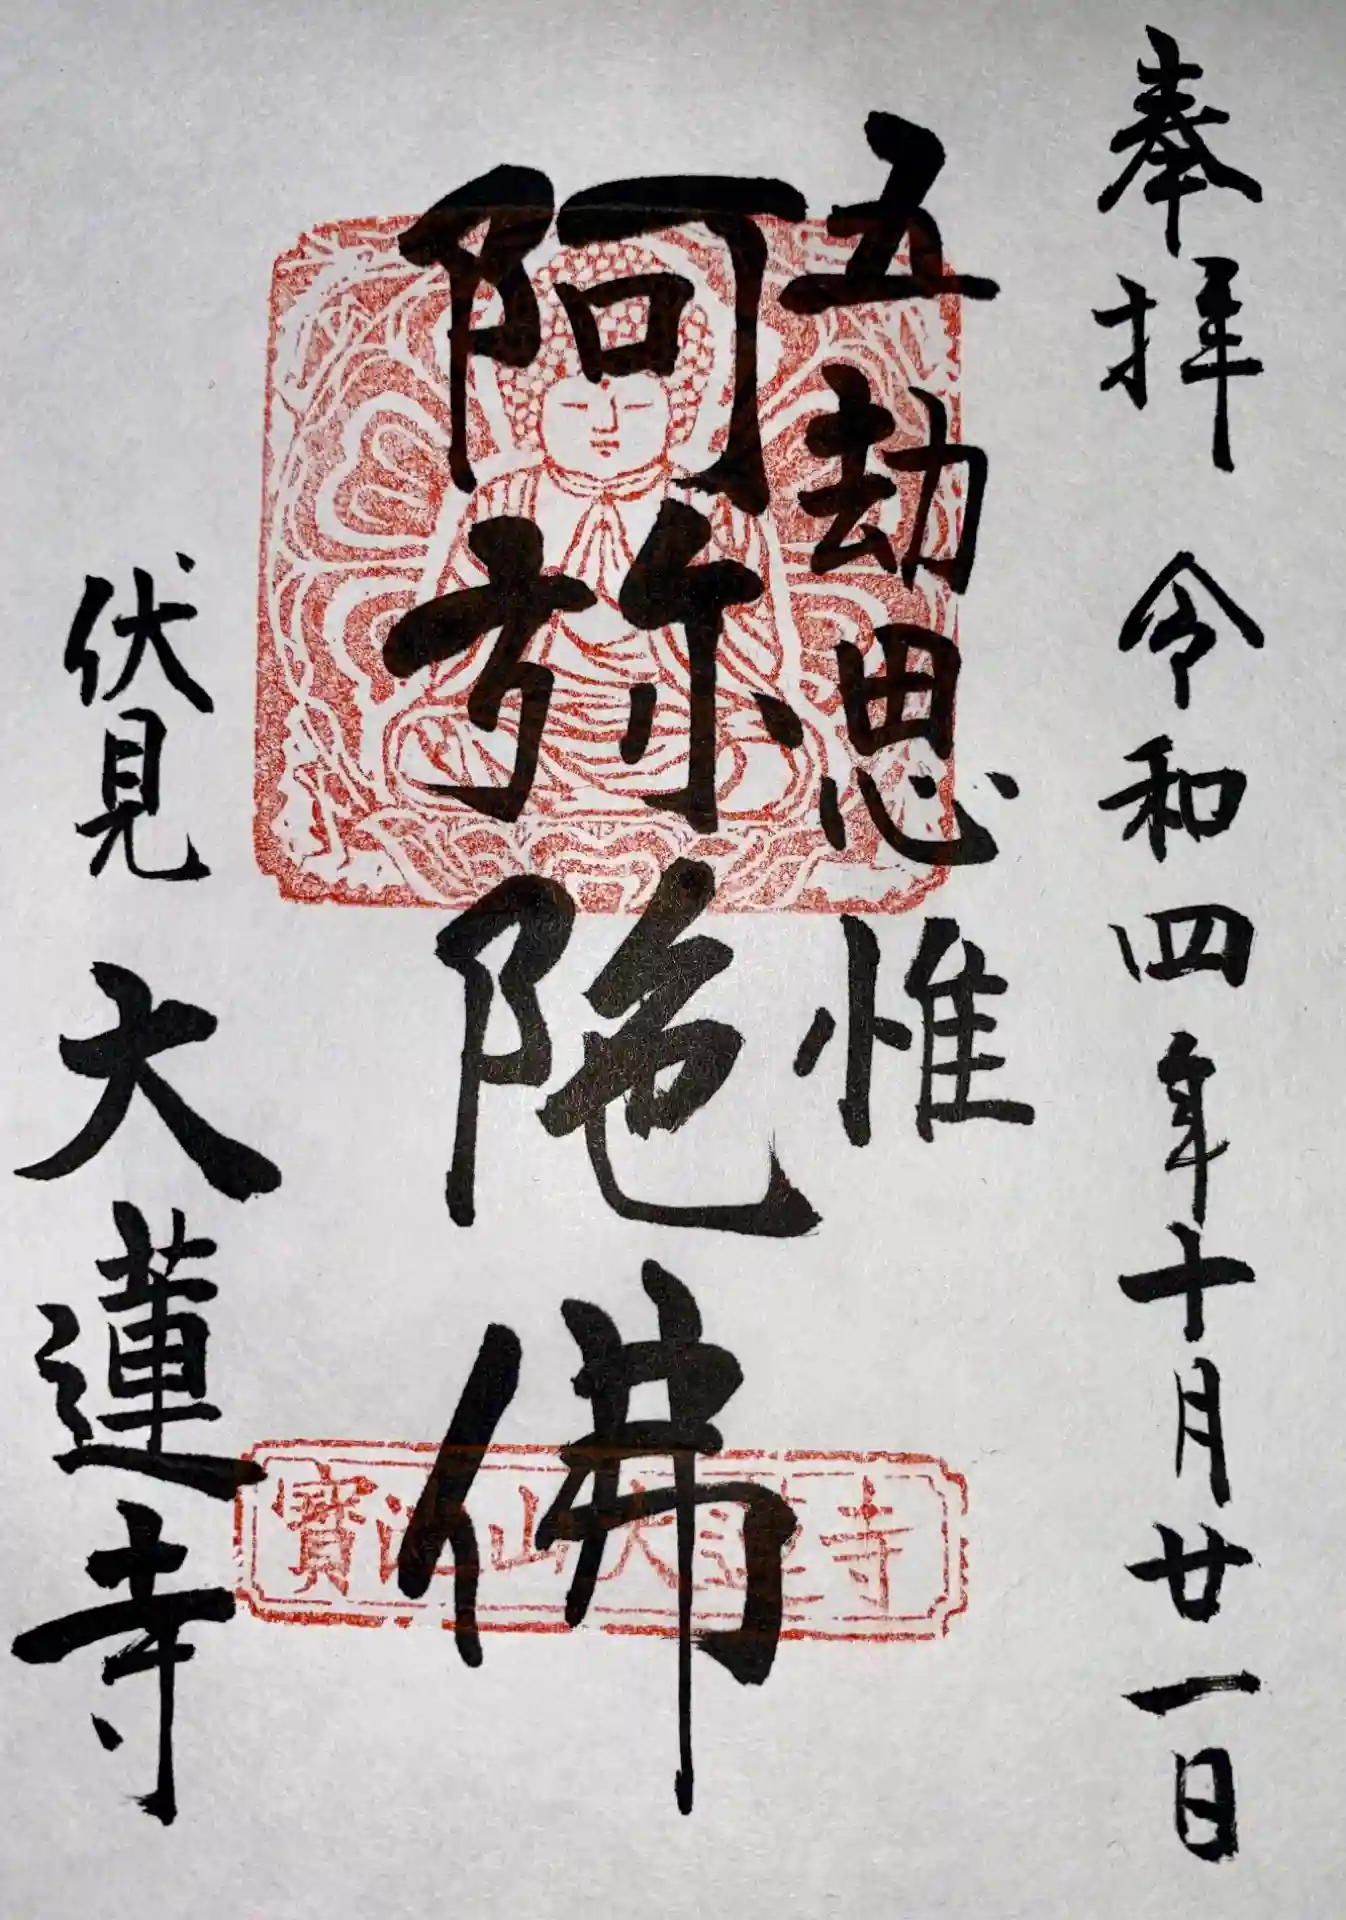 奉拝 令和四年十月廿一日
五劫思惟
阿弥陀佛
伏見 大蓮寺
寶池山大蓮寺